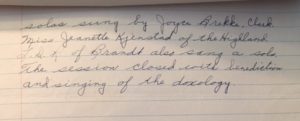 solos sung by Joyce Brekke, Clark
Miss Jeanette Kjenstad of the Highland
of Brandt also sang a solo
The session closed with benediction
and singing of the doxology.